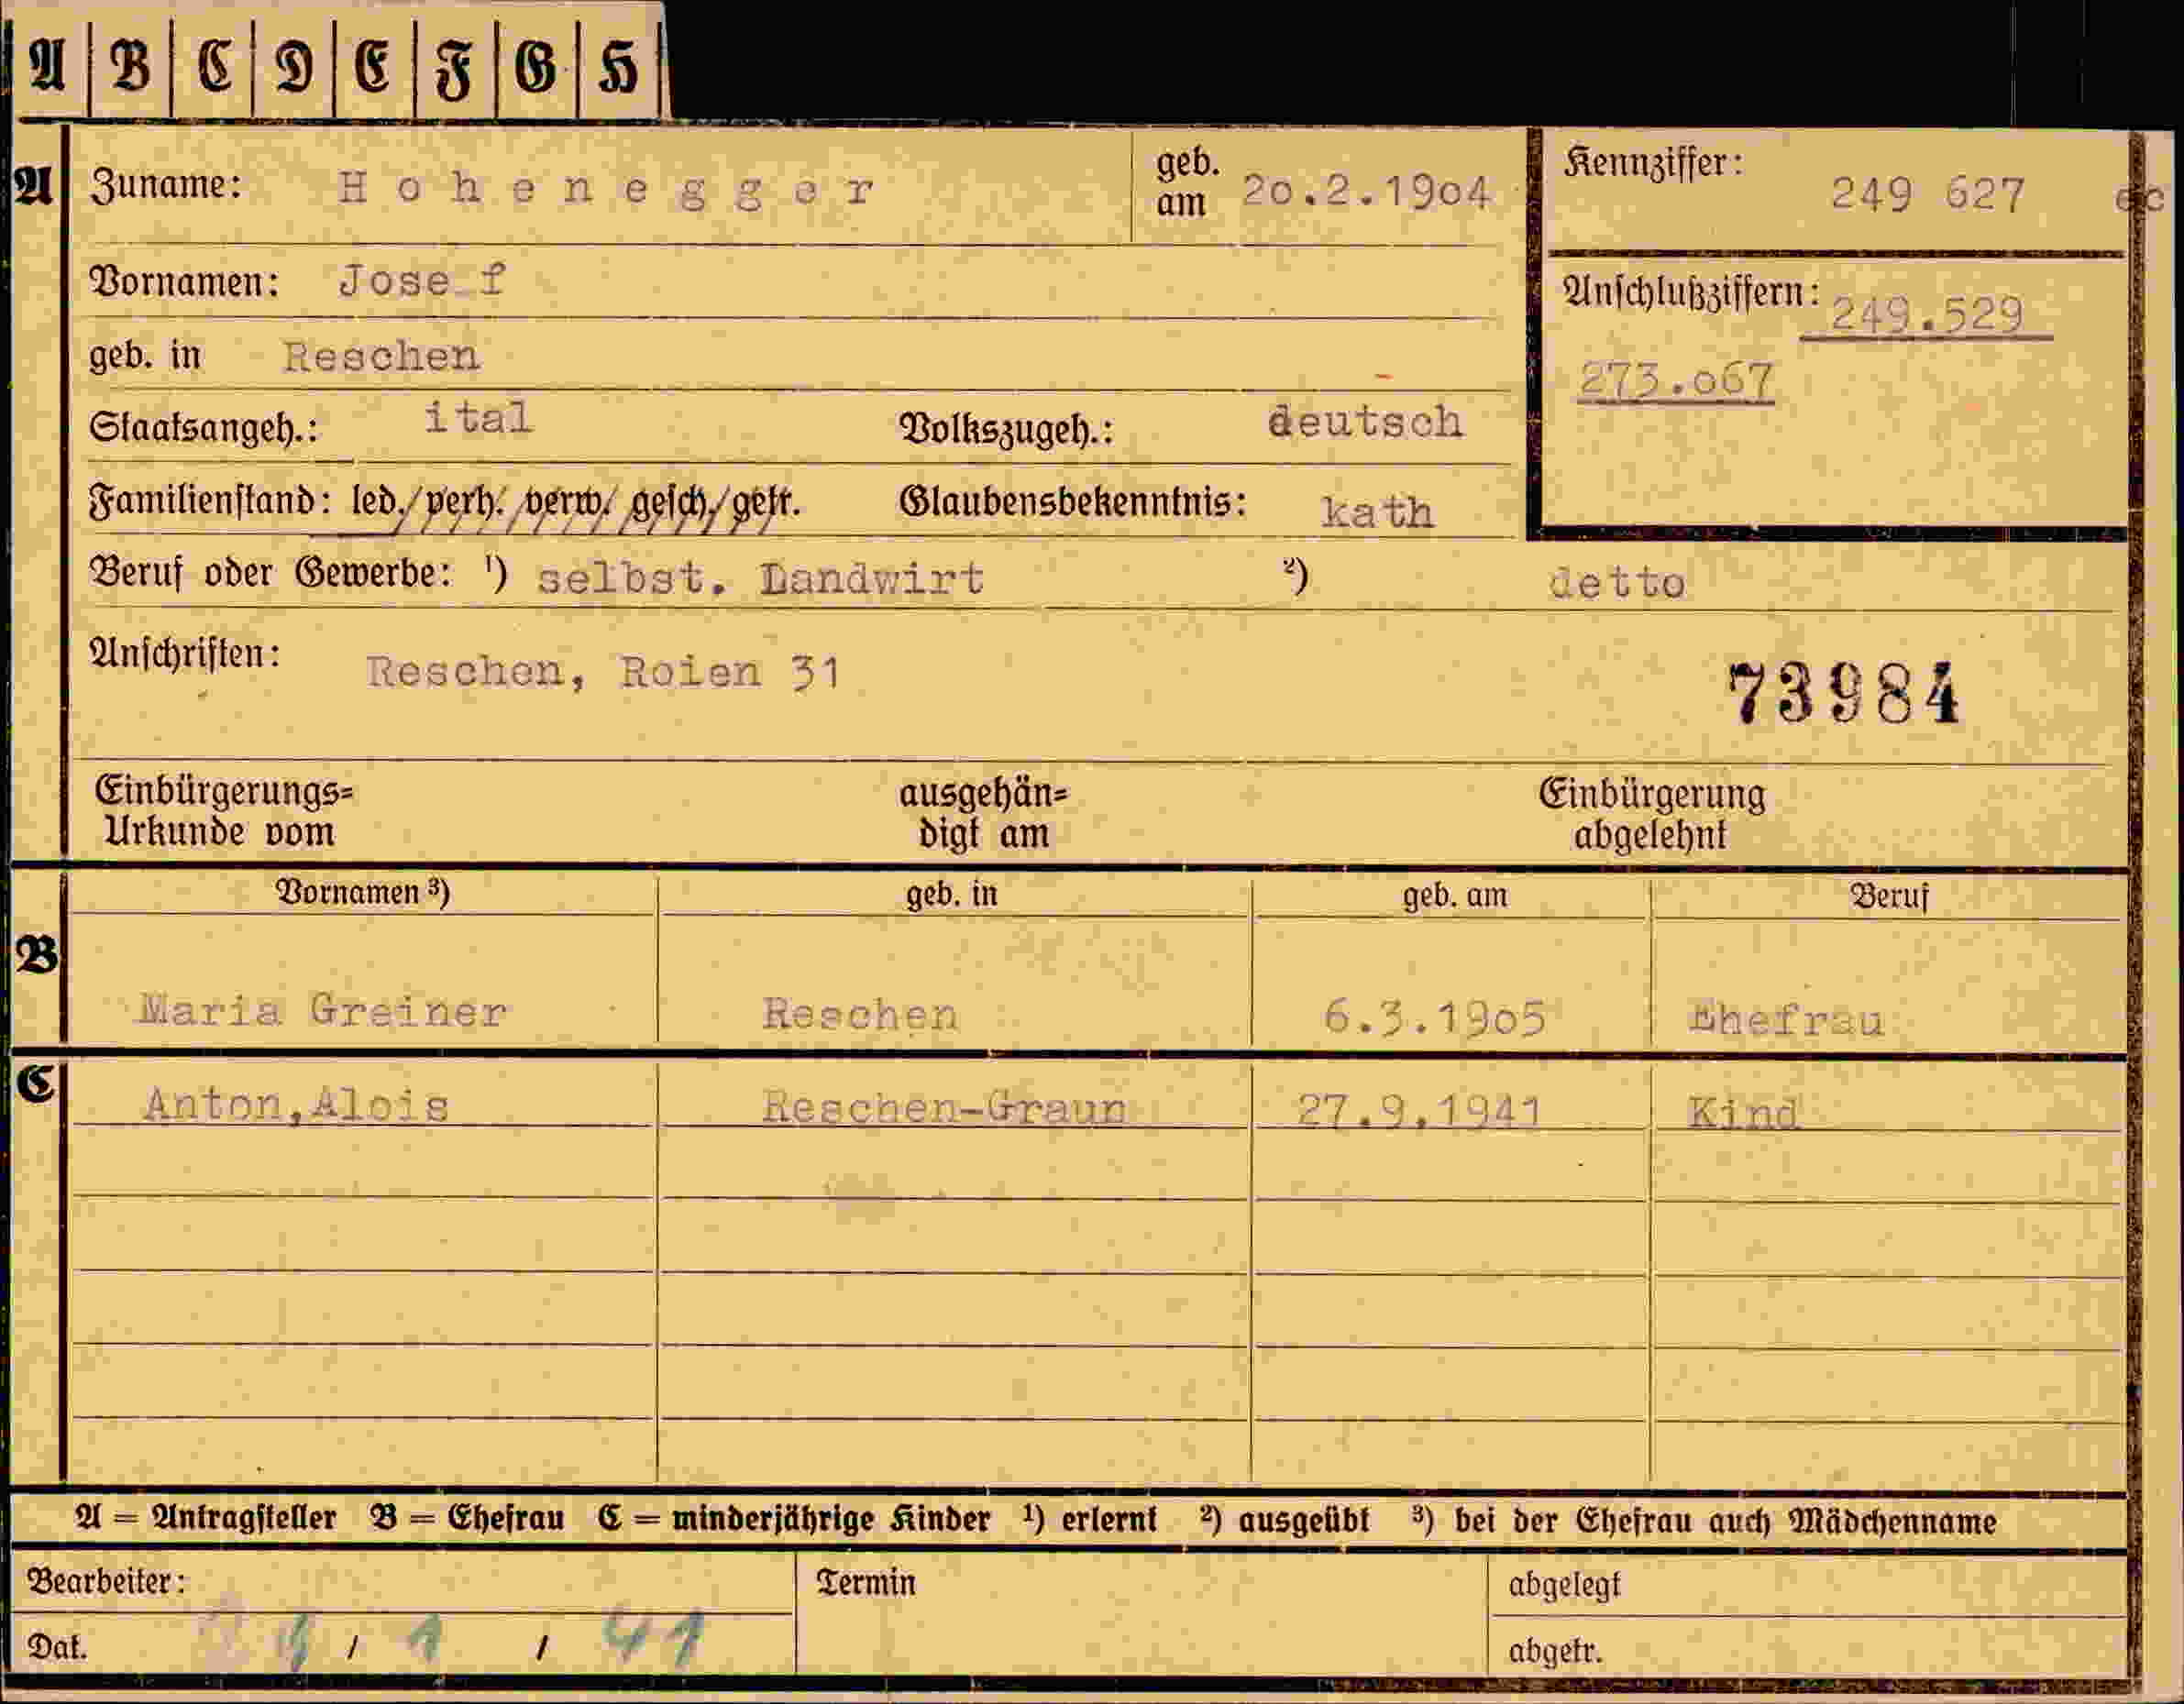 A B C D E F G H
A Zuname: Hohenegger geb. am 20.2.1904 Kennziffer: 249 627
Vornamen: Josef Anschlußziffern: 249.529
geb. in Reschen 273.067
Staatsangeh.: ital Volkszugeh.: deutsch
Familienstand: led./verh./verw./gesch./getr. Glaubensbekenntnis: kath
Beruf oder Gewerbe: ¹) selbst. Landwirt ²) detto
Anschriften: Reschen, Roien 31 73984
Einbürgerungs= ausgehän= Einbürgerung
Urkunde vom digt am abgelehnt
Vornamen ³) geb. in geb. am Beruf
B Maria Greiner Reschen 6.3.1905 Ehefrau
C Anton,Alois Reschen-Graun 27.9.1941 Kind
A = Antragsteller B = Ehefrau C = minderjährige Kinder ¹) erlernt ²) ausgeübt ³) bei der Ehefrau auch Mädchenname
Bearbeiter: Termin abgelegt
Dat. / 1 / 41 abgetr.